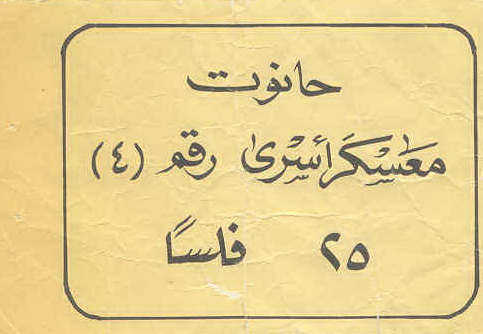 حانوت
مَعَسْكَر أَسْرىٰ رقم (٤)
٢٥ فلسًا